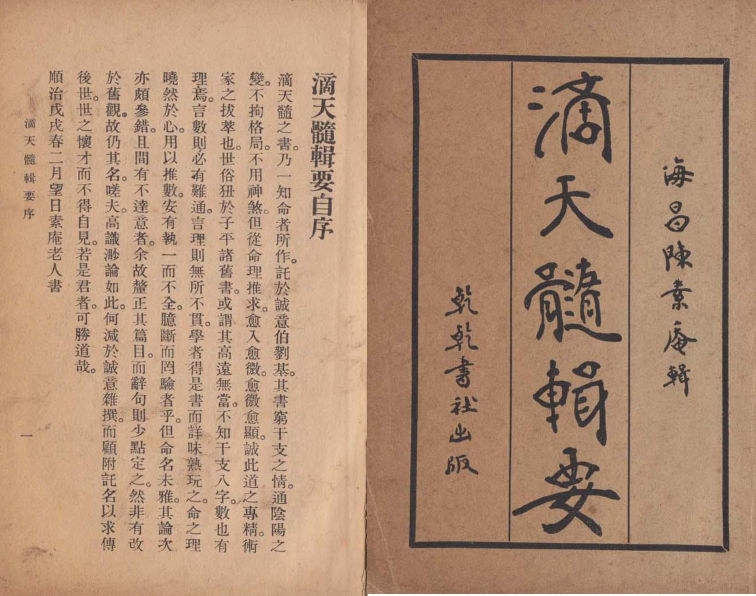 海昌陳素庵輯
滴天髓輯要
乾乾書社出版
滴天髓輯要自序
滴天髓之書。乃一知命者所作。託於誠意伯劉基。其書窮干支之情。通陰陽之
變。不拘格局。不用神煞。但從命理推求。愈入愈微。愈微愈顯。誠此道之專精。術
家之拔萃也。世俗狃於子平諸舊書。或謂其高遠無當。不知干支八字。數也有
理焉。言數則必有難通。言理則無所不貫。學者得是書而詳味熟玩之。命之理
曉然於心。用以推數。安有執一而不全。臆斷而罔驗者乎。但命名未雅。其論次
亦頗參錯。且間有不達意者。余故釐正其篇目。而辭句則少點定之。然非有改
於舊觀。故仍其名。嗟夫。高識渺論如此。何減於誠意雜撰。而顧附託名以求傳
後世。世之懷才而不得自見。若是君者。可勝道哉。
順治戊戌春二月望日素庵老人書
滴天髓輯要序
一